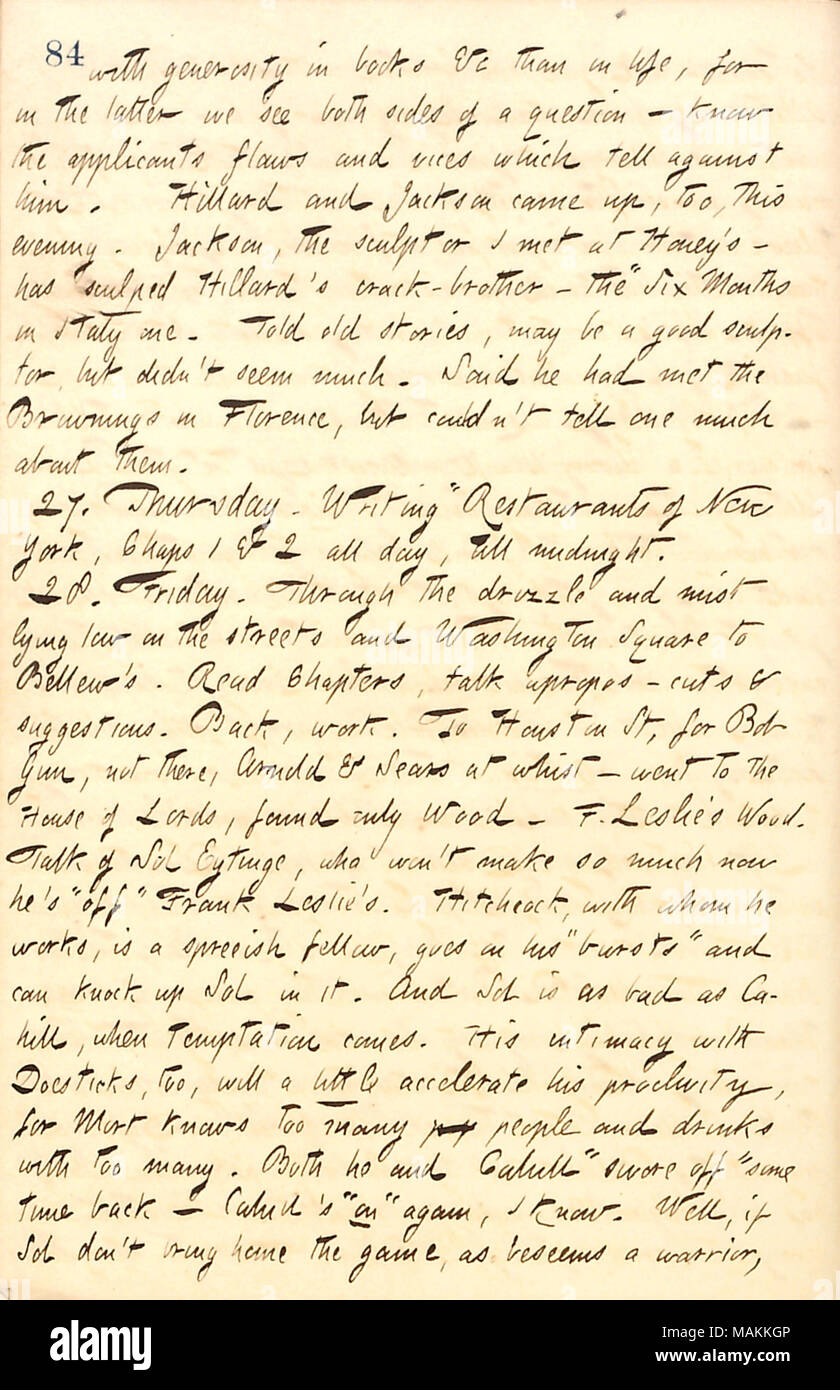 84
with generosity in books &c than in life, for
in the latter we see both sides of a question — know
the applicants flaws and vices which tell against
him. Hillard and Jackson came up, too, this
evening. Jackson, the sculptor I met at Honey's —
has sculped Hillard's crack-brother — the "Six Months
in Italy one. Told old stories, may be a good sculp-
tor, but didn't seem much. Said he had met the
Brownings in Florence, but couldn't tell one much
about them.
27. Thursday. Writing "Restaurants of New
York, Chaps 1 & 2 all day, till midnight.
28. Friday. Through the drizzle and mist
lying low on the streets and Washington Square to
Bellew's. Read Chapters, talk apropos — cuts &
suggestions. Back, work. To Houston St, for Bob
Gun, not there, Arnold & Sears at whist — went to the
House of Lords, found only Wood — F. Leslie's Wood.
Talk of Sol Eytinge, who won't make so much now
he's "off" Frank Leslie's. Hitchcock, with whom he
works, is a spreeish fellow, goes on his "bursts" and
can knock up Sol in it. And Sol is as bad as Ca-
hill, when temptation comes. His intimacy with
Doesticks, too, will a little accelerate his proclivity,
for Mort knows too many people and drinks
with too many. Both he and Cahill "swore off" some
time back — Cahill's "on" again, I know. Well, if
Sol don't bring home the game, as beseems a warrior,
alamy
Image ID: MAKKGP
www.alamy.com